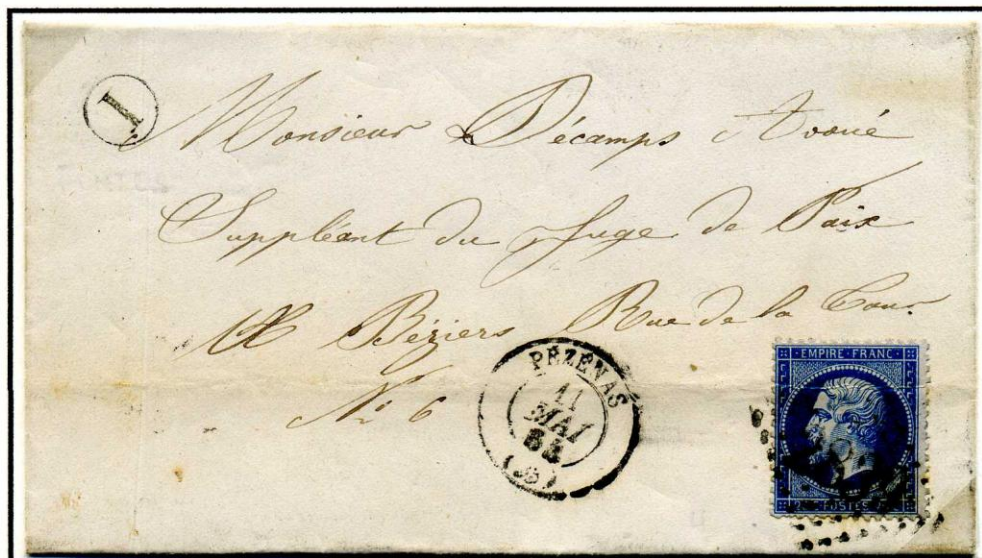 I
Monsieur Décamps Avoué
Suppléant du Juge de Paix
A Béziers Rue de la Cour
N° 6
PÉZENAS
11
MAI
(33)
EMPIRE FRANC
POSTES